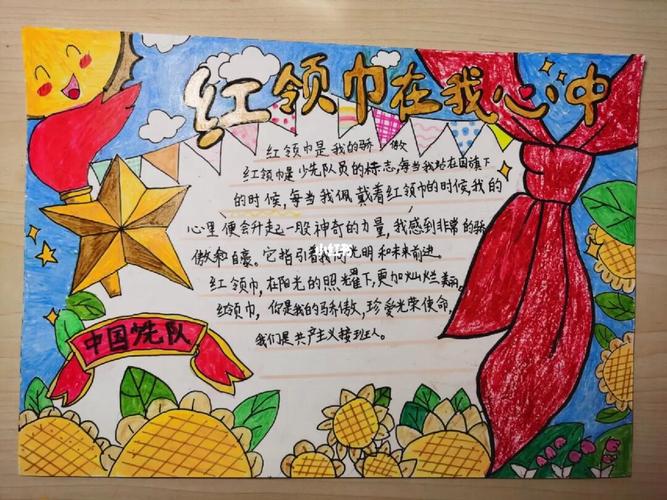 红领巾在我心中
红领巾是我的骄傲
红领巾是少先队员的标志,每当我站在国旗下
的时候,每当我佩戴着红领巾的时候,我的
心里便会升起一股神奇的力量,我感到非常的骄
傲和自豪。它指引着我向光明和未来前进。
红领巾,在阳光的照耀下,更加灿烂美丽。
红领巾,你是我的骄傲,珍爱光荣使命,
我们是共产主义接班人。
中国少先队
小红书